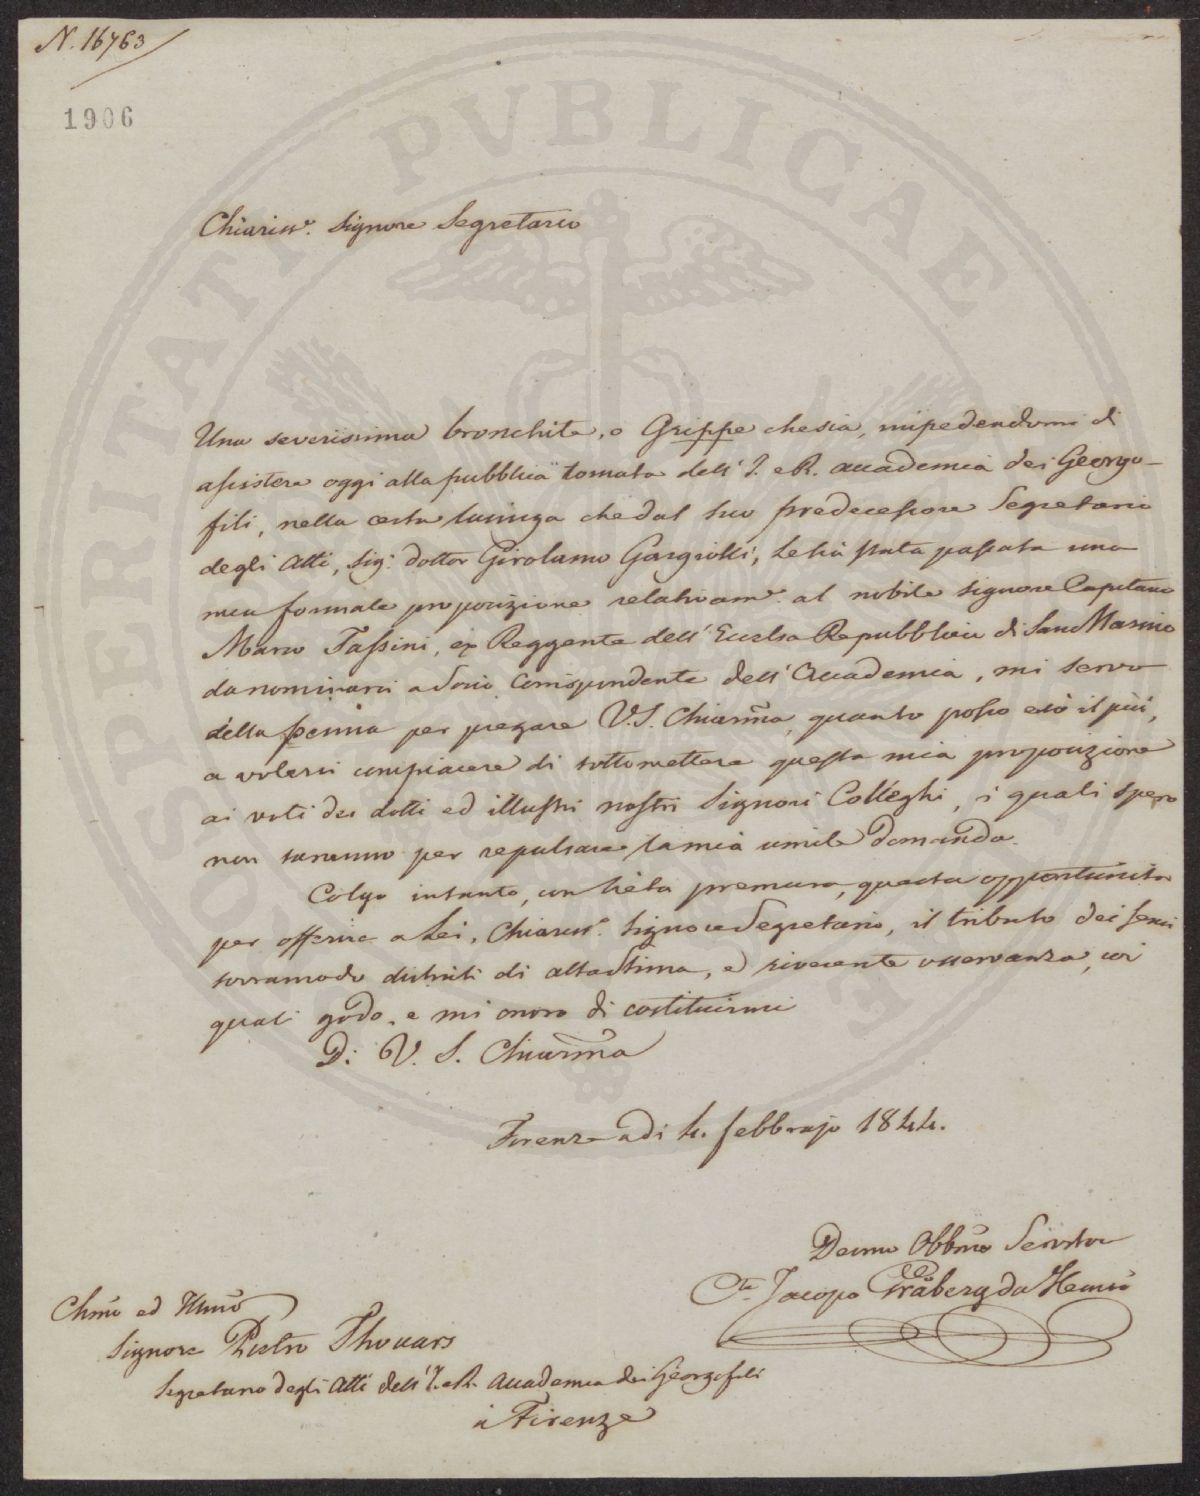 N. 16763
1906
PROSPERITATI PVBLICAE
Chiariss.e Signore Segretario
Una severissima bronchite, o Grippe che sia, impedendomi di
assistere oggi alla pubblica tornata dell' I. e R. accademia dei Georgo-
fili, nella certa lusinga che dal suo predecessore Segretario
degli Atti, Sig.r dottor Girolamo Gargiolli, le sià stata passata una
mia formale proposizione relativam.e al nobile Signore Capitano
Marco Tassini, ex Reggente dell' Eccelsa Repubblica di San Marino
da nominarsi a Socio Corrispondente dell' Accademia, mi servo
della penna per pregare V.S. Chiarma, quanto posso e so il più,
a volersi compiacere di sottomettere questa mia proposizione
ai voti dei dotti ed illustri nostri Signori Colleghi, i quali spero
non saranno per repulsare la mia umile domanda.
Colgo intanto, con lieta premura, questa opportunita
per offerire a Lei, Chiariss.e Signore Segretario, il tributo dei sensi
sovramodo distinti di alta stima, e riverente osservanza, coi
quali godo, e mi onoro di costituirmi
Di V. S. Chiarma
Firenze adi 4. febbrajo 1844.
Devmo Obbmo Servitore
Cte Jacopo Gråberg da Hemsö
Chmo ed Illmo
Signore Pietro Thouars
Segretario degli Atti dell' I. e R. Accademia dei Georgofili
a Firenze